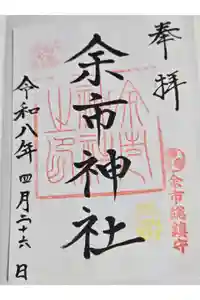 奉拝
余市神社
令和八年 四月二十六日
余市総鎮守